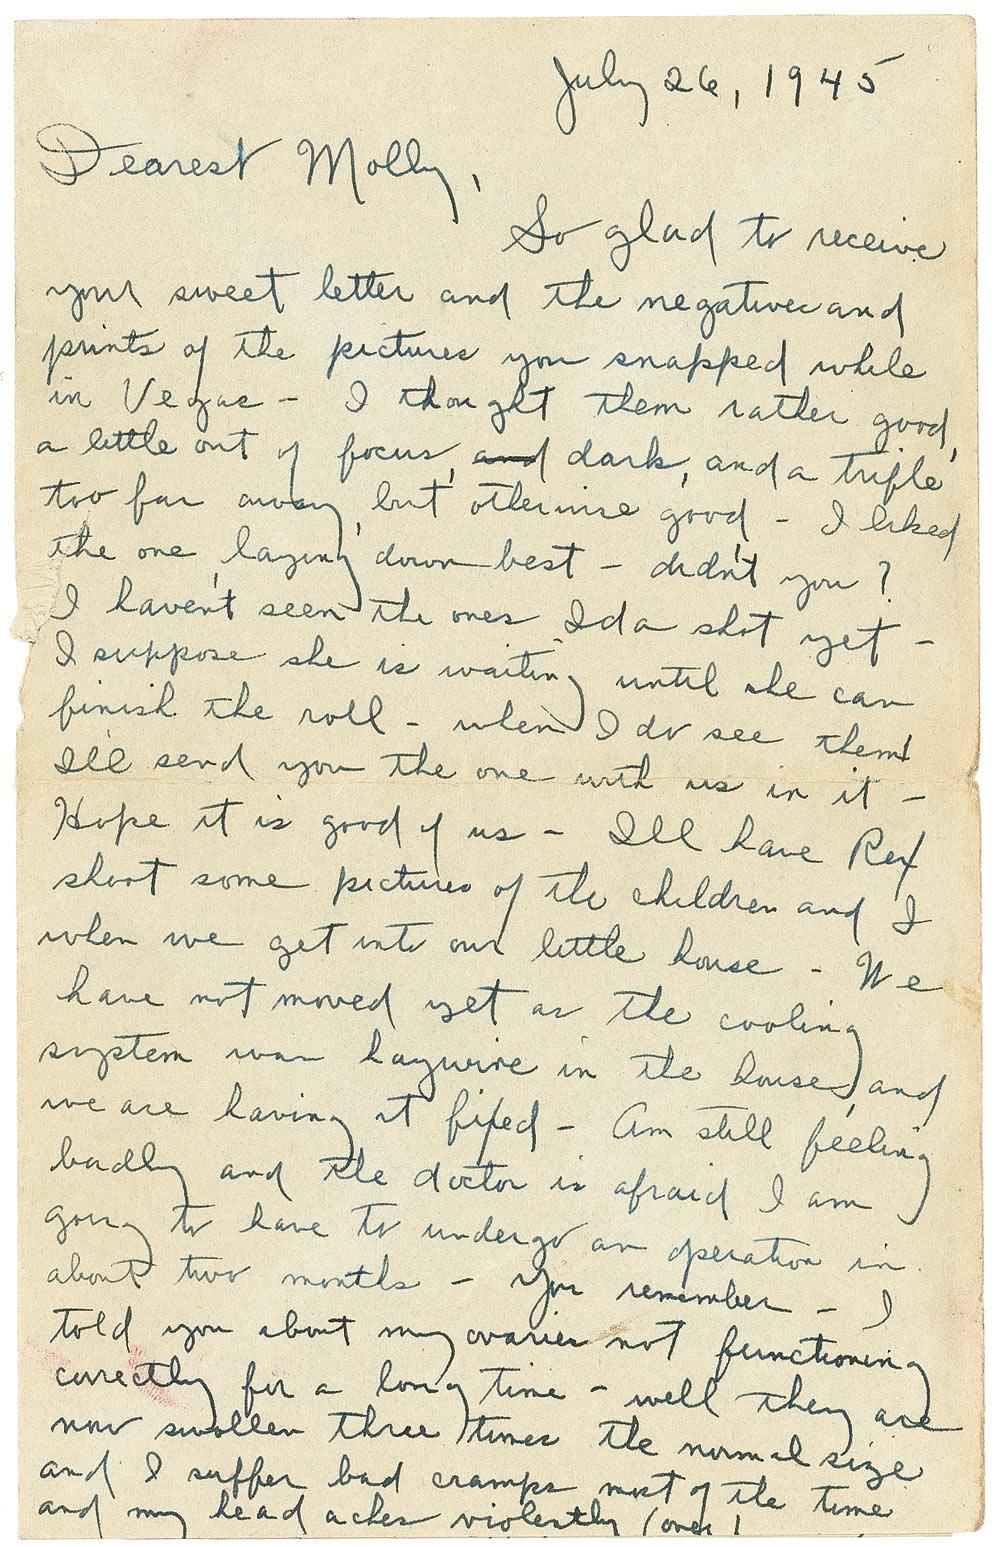 July 26, 1945
Dearest Molly,
So glad to receive
your sweet letter and the negatives and
prints of the pictures you snapped while
in Vegas - I thought them rather good,
a little out of focus, and dark, and a trifle
too far away, but otherwise good - I liked
the one, laying down best - didn't you?
I haven't seen the ones Ida shot yet -
I suppose she is waiting until she can
finish the roll - when I do see them
I'll send you the one with us in it -
Hope it is good of us - I'll have Rex
shoot some pictures of the children and I
when we get into our little house - We
have not moved yet as the cooling
system was haywire in the house, and
we are having it fixed - Am still feeling
badly and the doctor is afraid I am
going to have to undergo an operation in
about two months - You remember - I
told you about my ovaries not functioning
correctly for a long time - well they are
now swollen three times the normal size
and I suffer bad cramps most of the time
and my head aches violently (over)